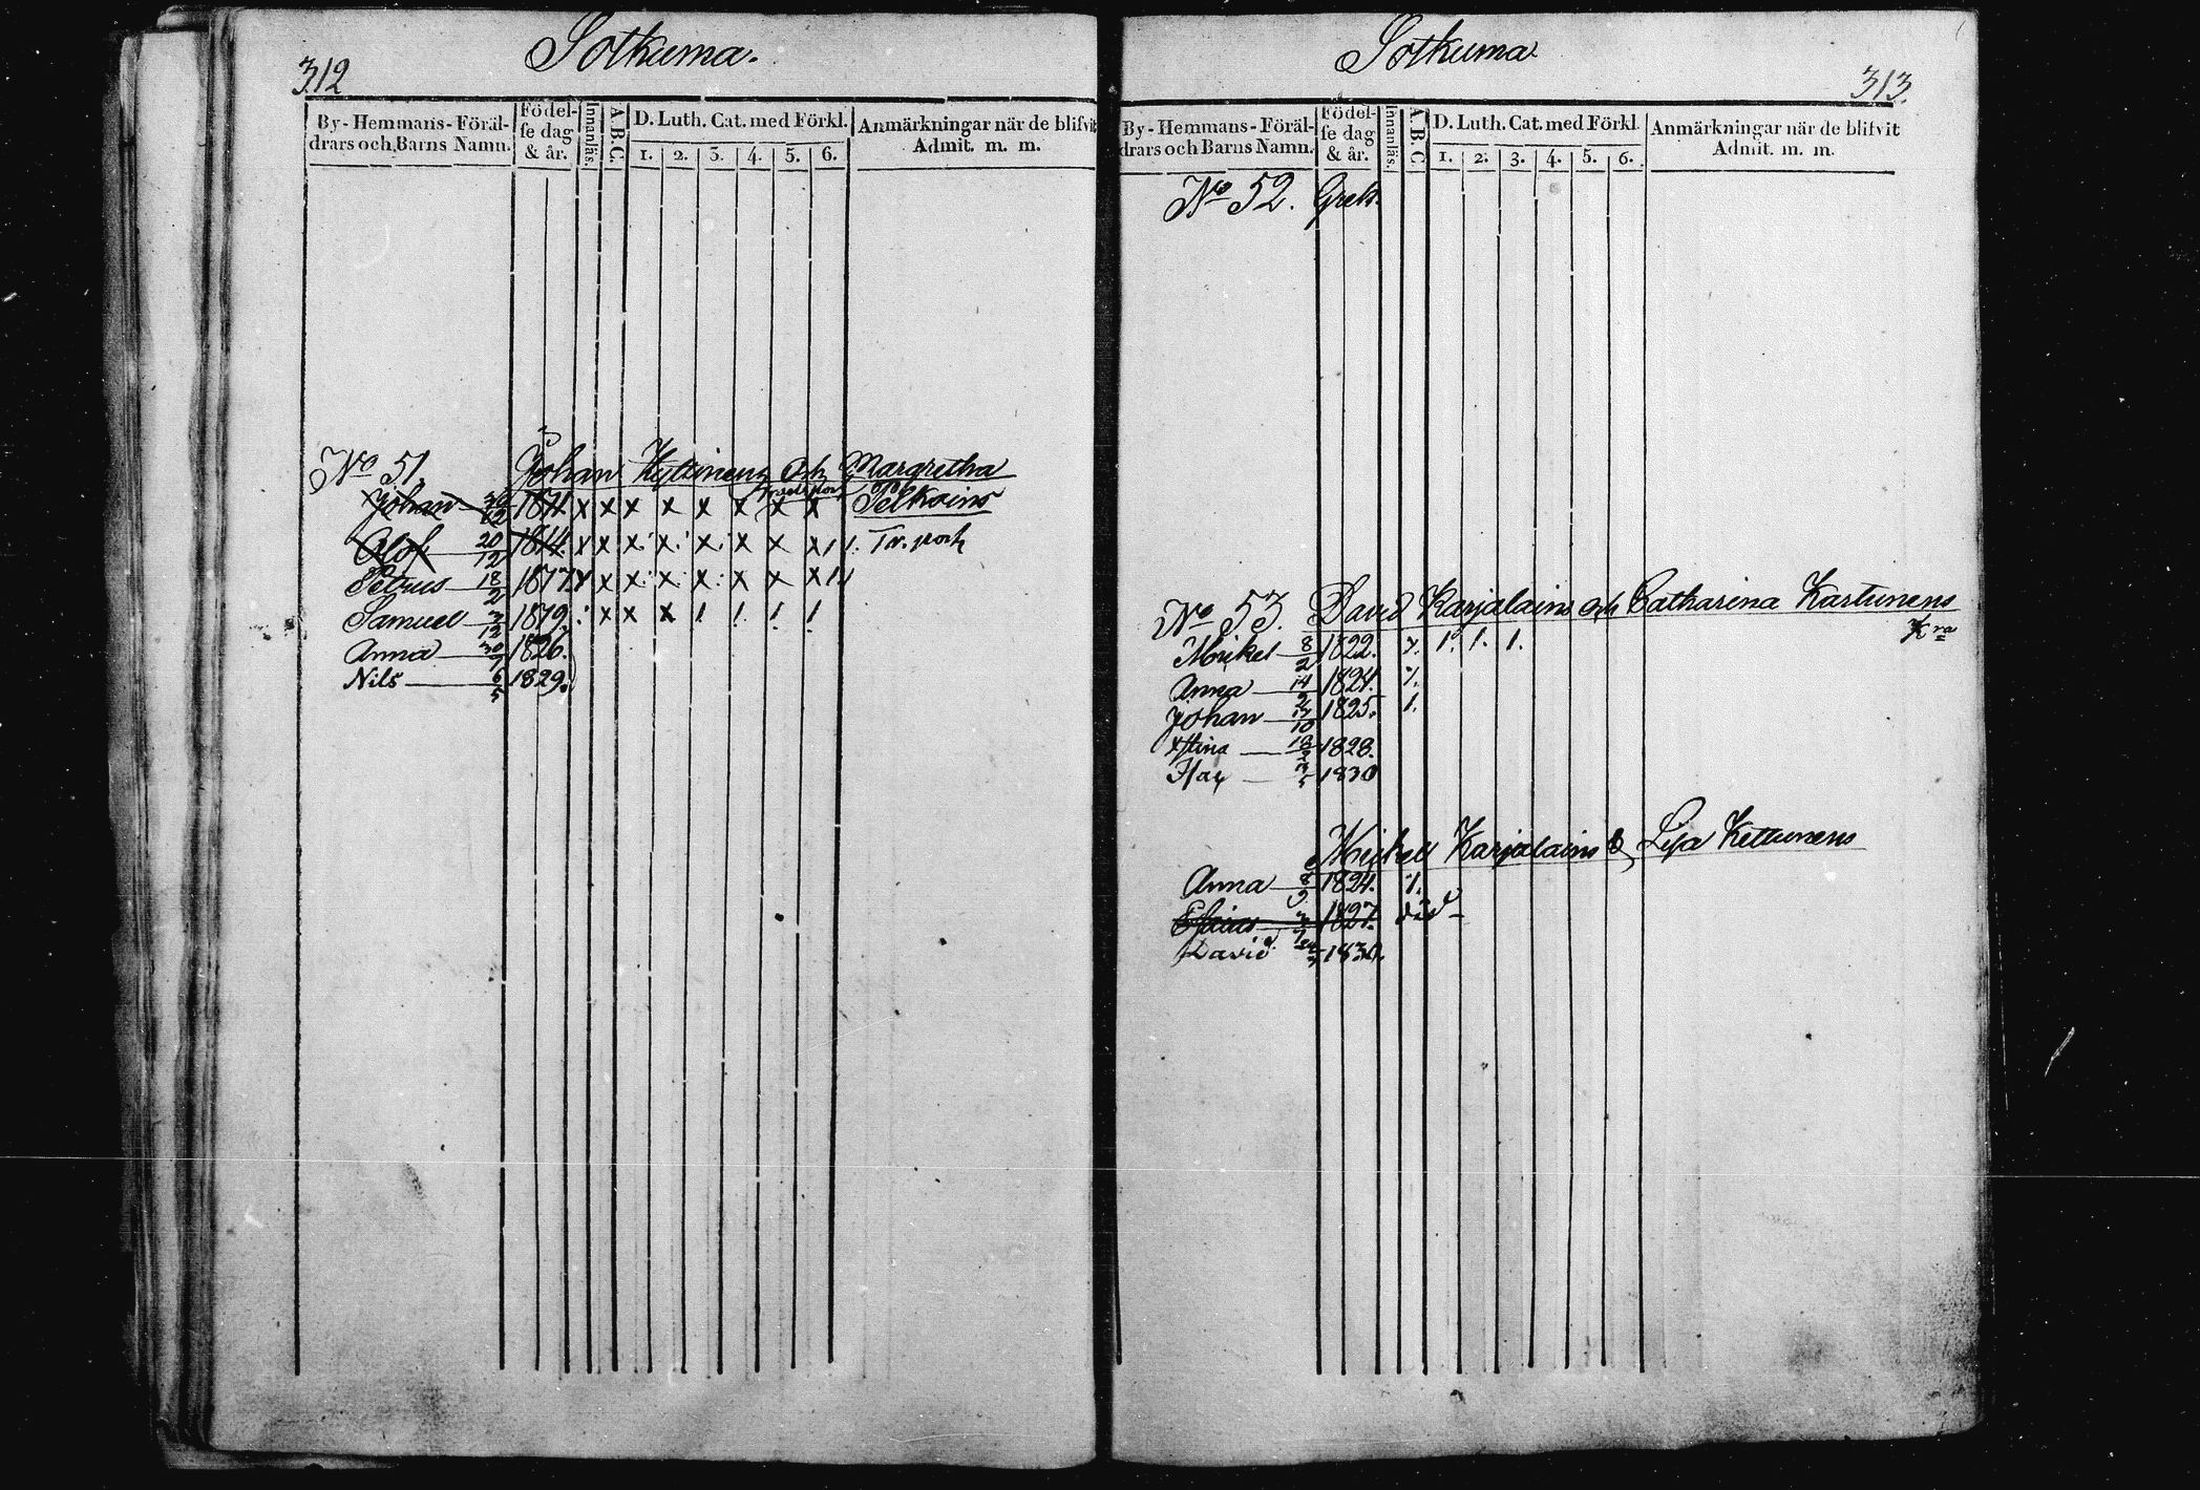 312
Sotkuma.
By-Hemmans-Föräl-
drars och Barns Namn.
Födel-
se dag
& år.
Innanläs.
A.B.C.
D. Luth. Cat. med Förkl.
1. 2. 3. 4. 5. 6.
Anmärkningar när de blifvit
Admit. m. m.
No 51. Johan Kyttinens och Margretha
Pelkoins
Johan 1811 x x x x x x x x
Olof 20/12 1814. x x x x x x x x
Petrus 18/2 1817. x x x x x x x x
Samuel 1819. x x x 1 1 1 1
Anna 1826.
Nils 6/5 1829.
Sotkuma
313.
By-Hemmans-Föräl-
drars och Barns Namn.
Födel-
se dag
& år.
Innanläs.
A.B.C.
D. Luth. Cat. med Förkl.
1. 2. 3. 4. 5. 6.
Anmärkningar när de blifvit
Admit. m. m.
No 52. Grek.
No 53. David Karjalains och Catharina Kartunens
Mickel 8/2 1822. 1. 1. 1.
Anna 1824.
Johan 1825. 1.
Stina 1828.
Isac 1830
Mickell Karjalains & Lisa Kettunens
Anna 8/9 1824. 1.
Esaias 1827. död
David 1830.